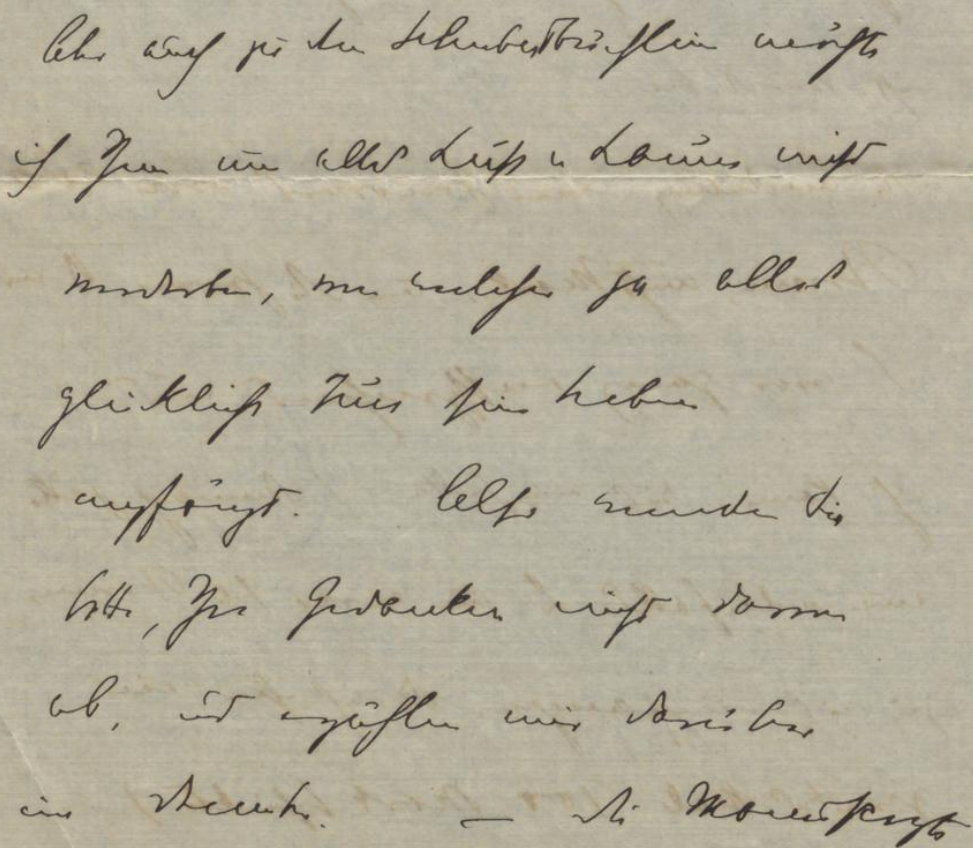 Aber auch zu den Schubertbüchlein möchte
ich Ihnen um alles Lust u Laune nicht
verderben, welcher ja alles
glücklich sein Leben
empfängt. Also wenden Sie
bitte, Ihre Gedanken nicht davon
ab, und erzählen mir darüber
im — Die Manuskripte